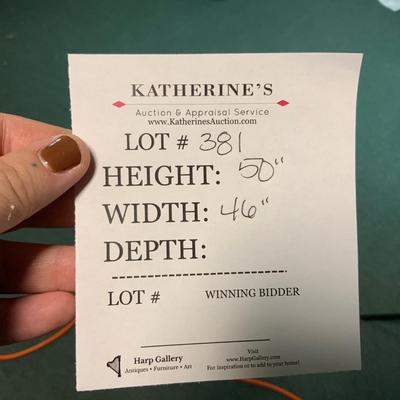 KATHERINE'S
Auction & Appraisal Service
www.KatherinesAuction.com
LOT # 381
HEIGHT: 50"
WIDTH: 46"
DEPTH:
LOT # WINNING BIDDER
Harp Gallery
Antiques • Furniture • Art
Visit
www.HarpGallery.com
For inspiration or to add to your home!